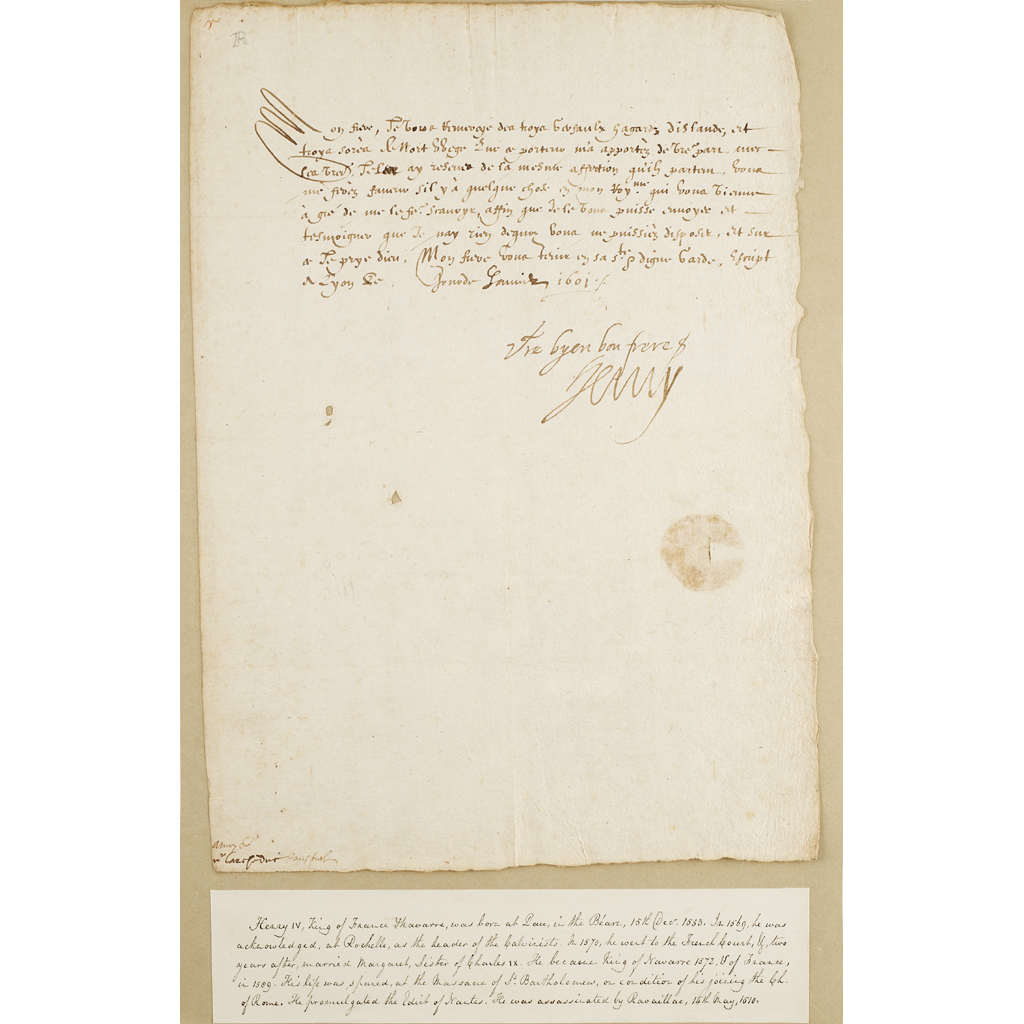 R
Mon frere, Je vous renvoye des troys Gerfaulx hagardz dislande, et
troys sores de Nort Vvege que ce porteur m'a apportez de vre part avec
les vres, Je les ay receuz de la mesme affection quilz partent. Vous
me ferez faveur sil y a quelque chose en mon Roy.me qui vous vienne
à gré de me le fe. scavoyr, affin que Je le vous puisse envoyer et
tesmoigner que Je nay rien dequoy vous ne puissiez disposer, et sur
ce Je prye dieu, Mon frere vous tenir en sa s.te & digne Garde, Escript
à Lyon le Jour de Janvier 1601./.
Vre byen bon frere
Henry
a mon fr
larch Duc
Henry IV, King of France & Navarre, was born at Pau, in the Béarn, 15th Dec. 1553. In 1569, he was
acknowledged, at Rochelle, as the leader of the Calvinists. In 1570, he went to the French Court, &, two
years after, married Margaret, Sister of Charles IX. He became King of Navarre 1572, & of France,
in 1589. His life was spared, at the Massacre of St. Bartholomew, on condition of his joining the Ch.
of Rome. He promulgated the Edict of Nantes. He was assassinated by Ravaillac, 14th May, 1610.